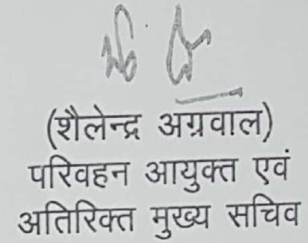 (शैलेन्द्र अग्रवाल)
परिवहन आयुक्त एवं
अतिरिक्त मुख्य सचिव